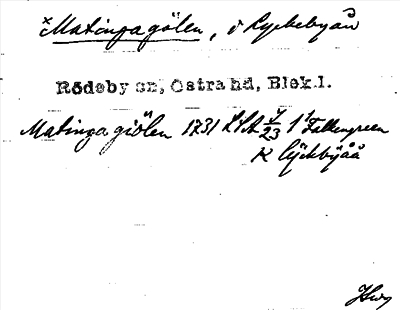 × Matingagölen, ö Lyckebyån
Rödeby sn, Östra hd, Blek.l.
Matinga giölen 1731 LSA 1 Falkengreen
K lÿckbÿåå